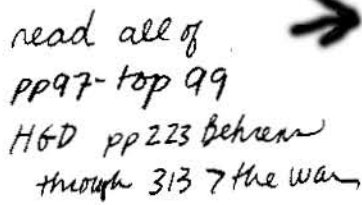 read all of
pp97-top 99
HGD pp223 Behrens
through 313 > the war